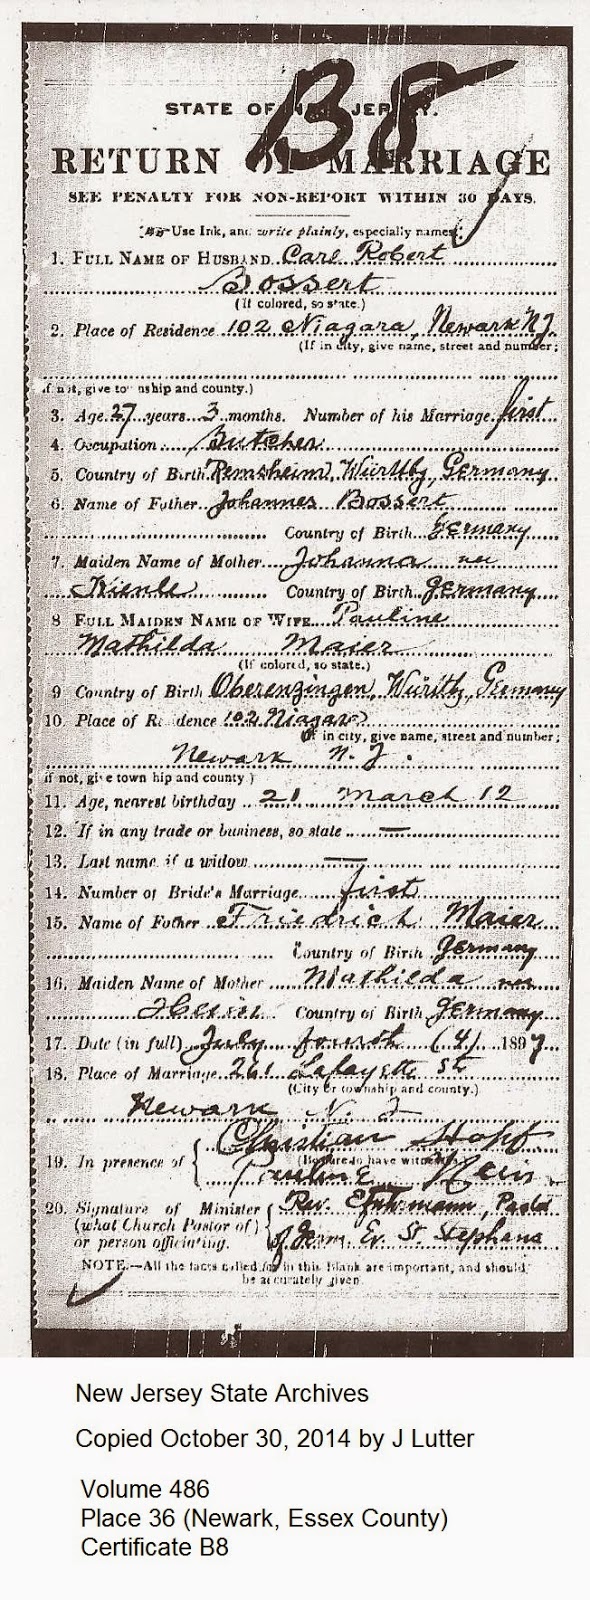 B8
STATE OF NEW JERSEY.
RETURN OF MARRIAGE
SEE PENALTY FOR NON-REPORT WITHIN 30 DAYS.
Use Ink, and write plainly, especially names.
1. FULL NAME OF HUSBAND Carl Robert
Bossert
(If colored, so state.)
2. Place of Residence 102 Niagara, Newark N.J.
(If in city, give name, street and number;
if not, give township and county.)
3. Age 27 years 3 months. Number of his Marriage first
4. Occupation Butcher
5. Country of Birth Remsheim, Württbg, Germany
6. Name of Father Johannes Bossert
Country of Birth Germany
7. Maiden Name of Mother Johanna nee
Kienle Country of Birth Germany
8 FULL MAIDEN NAME OF WIFE Pauline
Mathilda Maier
(If colored, so state.)
9 Country of Birth Oberenzingen, Württbg, Germany
10. Place of Residence 102 Niagara
(If in city, give name, street and number;
Newark N. J.
if not, give township and county)
11. Age, nearest birthday 21 March 12
12. If in any trade or business, so state —
13. Last name if a widow —
14. Number of Bride's Marriage first
15. Name of Father Friedrich Maier
Country of Birth Germany
16. Maiden Name of Mother Mathilda nee
Country of Birth Germany
17. Date (in full) July fourth (4) 1897
18. Place of Marriage 261 Lafayette St
(City or township and county.)
Newark N. J
Christian Hopf
19. In presence of (Be sure to have witnesses)
Pauline
20. Signature of Minister Rev. Pastor
(what Church Pastor of)
or person officiating. of Germ. Ev. St. Stephans
NOTE.—All the facts called for in this Blank are important, and should
be accurately given.
New Jersey State Archives
Copied October 30, 2014 by J Lutter
Volume 486
Place 36 (Newark, Essex County)
Certificate B8